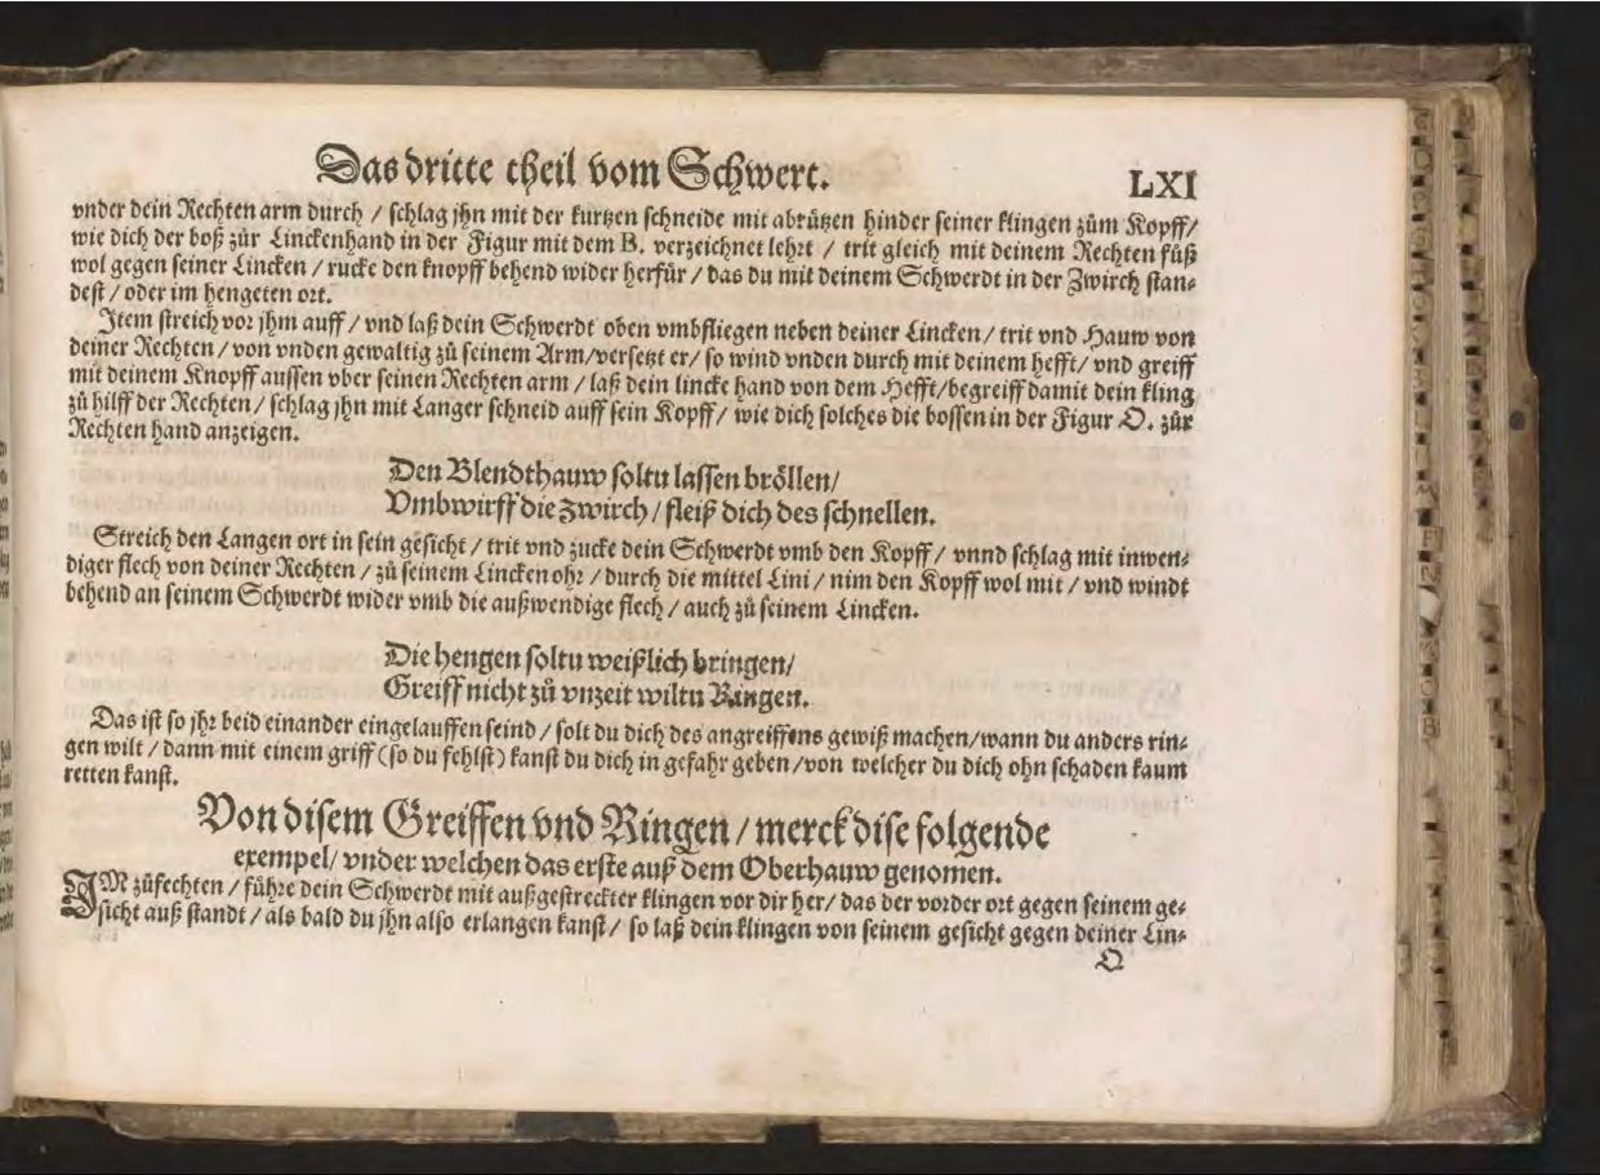 Das dritte theil vom Schwert.
LXI
vnder dein Rechten arm durch / schlag jhn mit der kurtzen schneide mit abrützen hinder seiner klingen zům Kopff/
wie dich der boß zůr Linckenhand in der Figur mit dem B. verzeichnet lehrt / trit gleich mit deinem Rechten fůß
wol gegen seiner Lincken / rucke den knopff behend wider herfür / das du mit deinem Schwerdt in der Zwirch stan-
dest / oder im hengeten ort.
Item streich vor jhm auff / vnd laß dein Schwerdt oben vmbfliegen neben deiner Lincken / trit vnd Hauw von
deiner Rechten / von vnden gewaltig zů seinem Arm/versetzt er/ so wind vnden durch mit deinem hefft/ vnd greiff
mit deinem Knopff aussen vber seinen Rechten arm / laß dein lincke hand von dem Hefft/begreiff damit dein kling
zů hilff der Rechten / schlag jhn mit Langer schneid auff sein Kopff / wie dich solches die bossen in der Figur O. zůr
Rechten hand anzeigen.
Den Blendthauw soltu lassen bröllen/
Vmbwirff die Zwirch / fleiß dich des schnellen.
Streich den Langen ort in sein gesicht / trit vnd zucke dein Schwerdt vmb den Kopff / vnnd schlag mit inwen-
diger flech von deiner Rechten / zů seinem Lincken ohr / durch die mittel Lini / nim den Kopff wol mit / vnd windt
behend an seinem Schwerdt wider vmb die außwendige flech / auch zů seinem Lincken.
Die hengen soltu weißlich bringen/
Greiff nicht zů vnzeit wiltu Ringen.
Das ist so jhr beid einander eingelauffen seind / solt du dich des angreiffens gewiß machen/wann du anders rin-
gen wilt / dann mit einem griff (so du fehlst) kanst du dich in gefahr geben /von welcher du dich ohn schaden kaum
retten kanst.
Von disem Greiffen vnd Ringen / merck dise folgende
exempel/ vnder welchen das erste auß dem Oberhauw genomen.
IM zůfechten / führe dein Schwerdt mit außgestreckter klingen vor dir her/ das der vorder ort gegen seinem ge-
sicht auß standt / als bald du jhn also erlangen kanst / so laß dein klingen von seinem gesicht gegen deiner Lin-
Q